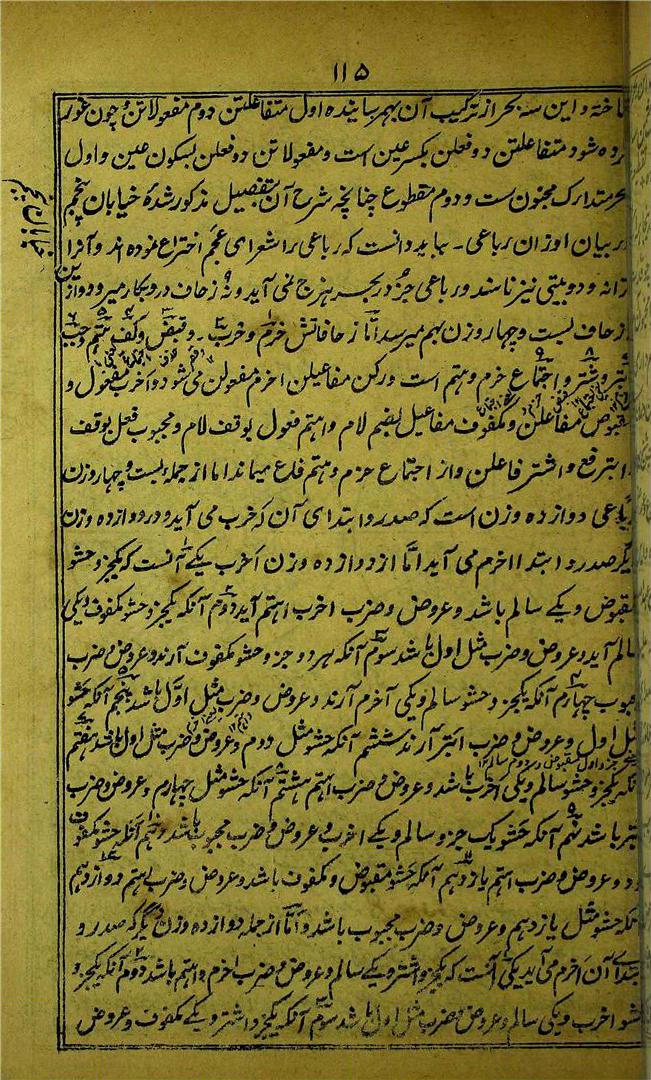 ۱۱۵
ساخته و این سه بحر از ترکیب آن بهر ساینده اول متفاعلتن دوم مفعولاتن و چون غور
کرده شود متفاعلتن دو فعلن بکسر عین است و مفعولاتن دو فعلن بسکون عین و اول
بحر متدارک مخبون ست و دوم مقطوع چنانچه شرح آن بتفصیل مذکور شده خیابان پنجم
در بیان اوزان رباعی - بباید دانست که رباعی را شعرای عجم اختراع نموده اند و آنرا
ترانه و دو بیتی نیز نامند و رباعی جز در بحر هزج نمی آید و نه زحاف درو بکار میرود و ازین
زحاف بست و چهار وزن بهم میرسد اما زحافاتش خرم و خرب و قبض و کف و هتم و جب
و بتر و شتر و اجتماع خرم و هتم است و رکن مفاعیلن اخرم مفعولن می شود و اخرب مفعول و
مقبوض مفاعلن و مکفوف مفاعیل بضم لام و اهتم فعول بوقف لام و مجبوب فعل بوقف
و ابتر فع و اشتر فاعلن و از اجتماع خرم و هتم فاع میماند اما از جمله بست و چهار وزن
رباعی دوازده وزن است که صدر و ابتدای آن که خرب می آید و در دوازده وزن
دیگر صدر و ابتدا اخرم می آید اما از دوازده وزن اخرب یکی آنست که یکجز و حشو
مقبوض و یکے سالم باشد و عروض و ضرب اخرب اهتم آید دوم آنکه یکجز و حشو مکفوف و یکی
سالم آید و عروض و ضرب مثل اول باشد سوم آنکه هر دو جز و حشو مکفوف آرند و عروض و ضرب
مجبوب چهارم آنکه یکجز و حشو سالم و یکی اخرم آرند و عروض و ضرب مثل اول باشد پنجم آنکه حشو
مثل اول و عروض و ضرب ابتر آرند ششم آنکه حشو مثل دوم و عروض و ضرب مثل اول باشد هفتم
آنکه یکجز و حشو سالم و یکی اخرب باشد و عروض و ضرب اهتم هشتم آنکه حشو مثل چهارم و عروض و ضرب
ابتر باشد نهم آنکه حشو یک جز و سالم و یکے اخرب و عروض و ضرب مجبوب باشد دهم آنکه حشو مکفوف
بود و عروض و ضرب اهتم یازدهم آنکه حشو مقبوض و مکفوف باشد و عروض و ضرب اهتم دوازدهم
آنکه حشو مثل یازدهم و عروض و ضرب مجبوب باشد و اما از جمله دوازده وزن دیگر که صدر و
ابتدای آن اخرم می آید یکی آنست که یکجز و اشتر و یکے سالم و عروض و ضرب اخرم و اهتم باشد دوم آنکه یکجز و
حشو اخرب و یکی سالم و عروض و ضرب مثل اول باشد سوم آنکه یکجز و اشتر و یکے مکفوف و عروض